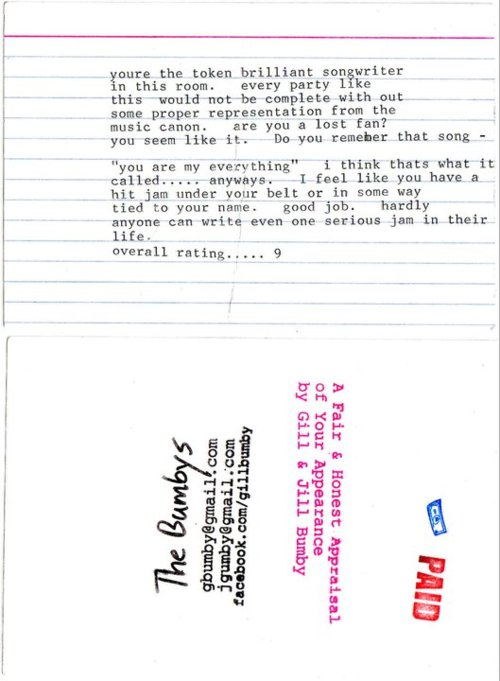 youre the token brilliant songwriter
in this room.   every party like
this  would not be complete with out
some proper representation from the
music canon.   are you a lost fan?
you seem like it.   Do you remember that song -
"you are my everything"   i think thats what it
called..... anyways.   I feel like you have a
hit jam under your belt or in some way
tied to your name.   good job.   hardly
anyone can write even one serious jam in their
life.
overall rating..... 9
A Fair & Honest Appraisal
of Your Appearance
by Gill & Jill Bumby
The Bumbys
gbumby@gmail.com
jgumby@gmail.com
facebook.com/gillbumby
PAID